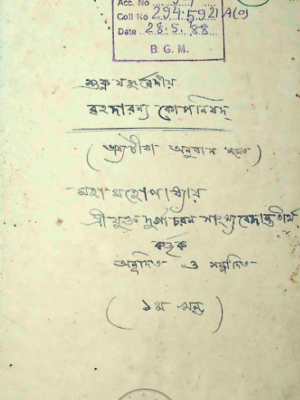 Acc. No
Coll No 294.5921/A(9)
Date 28.5.88
B. G. M.
শুক্ল যজুর্ব্বেদীয়
বৃহদারণ্য কোপনিষদ্
অনুবাদ সমেত)
মহা মহোপাধ্যায়
শ্রী যুক্ত দুর্গাচরন সাংখ্যবেদান্ততীর্থ
কর্তৃক
অনূদিত ও সম্পাদিত
(১ম খন্ড)